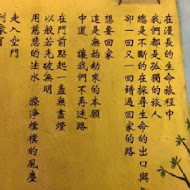 在漫長的生命旅程中
我們都是孤獨的旅人
總是不斷的在探尋生命的出口與
卻一回又一回錯過回家的路
想要回家
這是無始劫來的本願
中道 讓我們不再迷路
在門前點起一盞無盡燈
以般若光破無明
用慈悲的法水 滌淨樸樸的風塵
走入空門